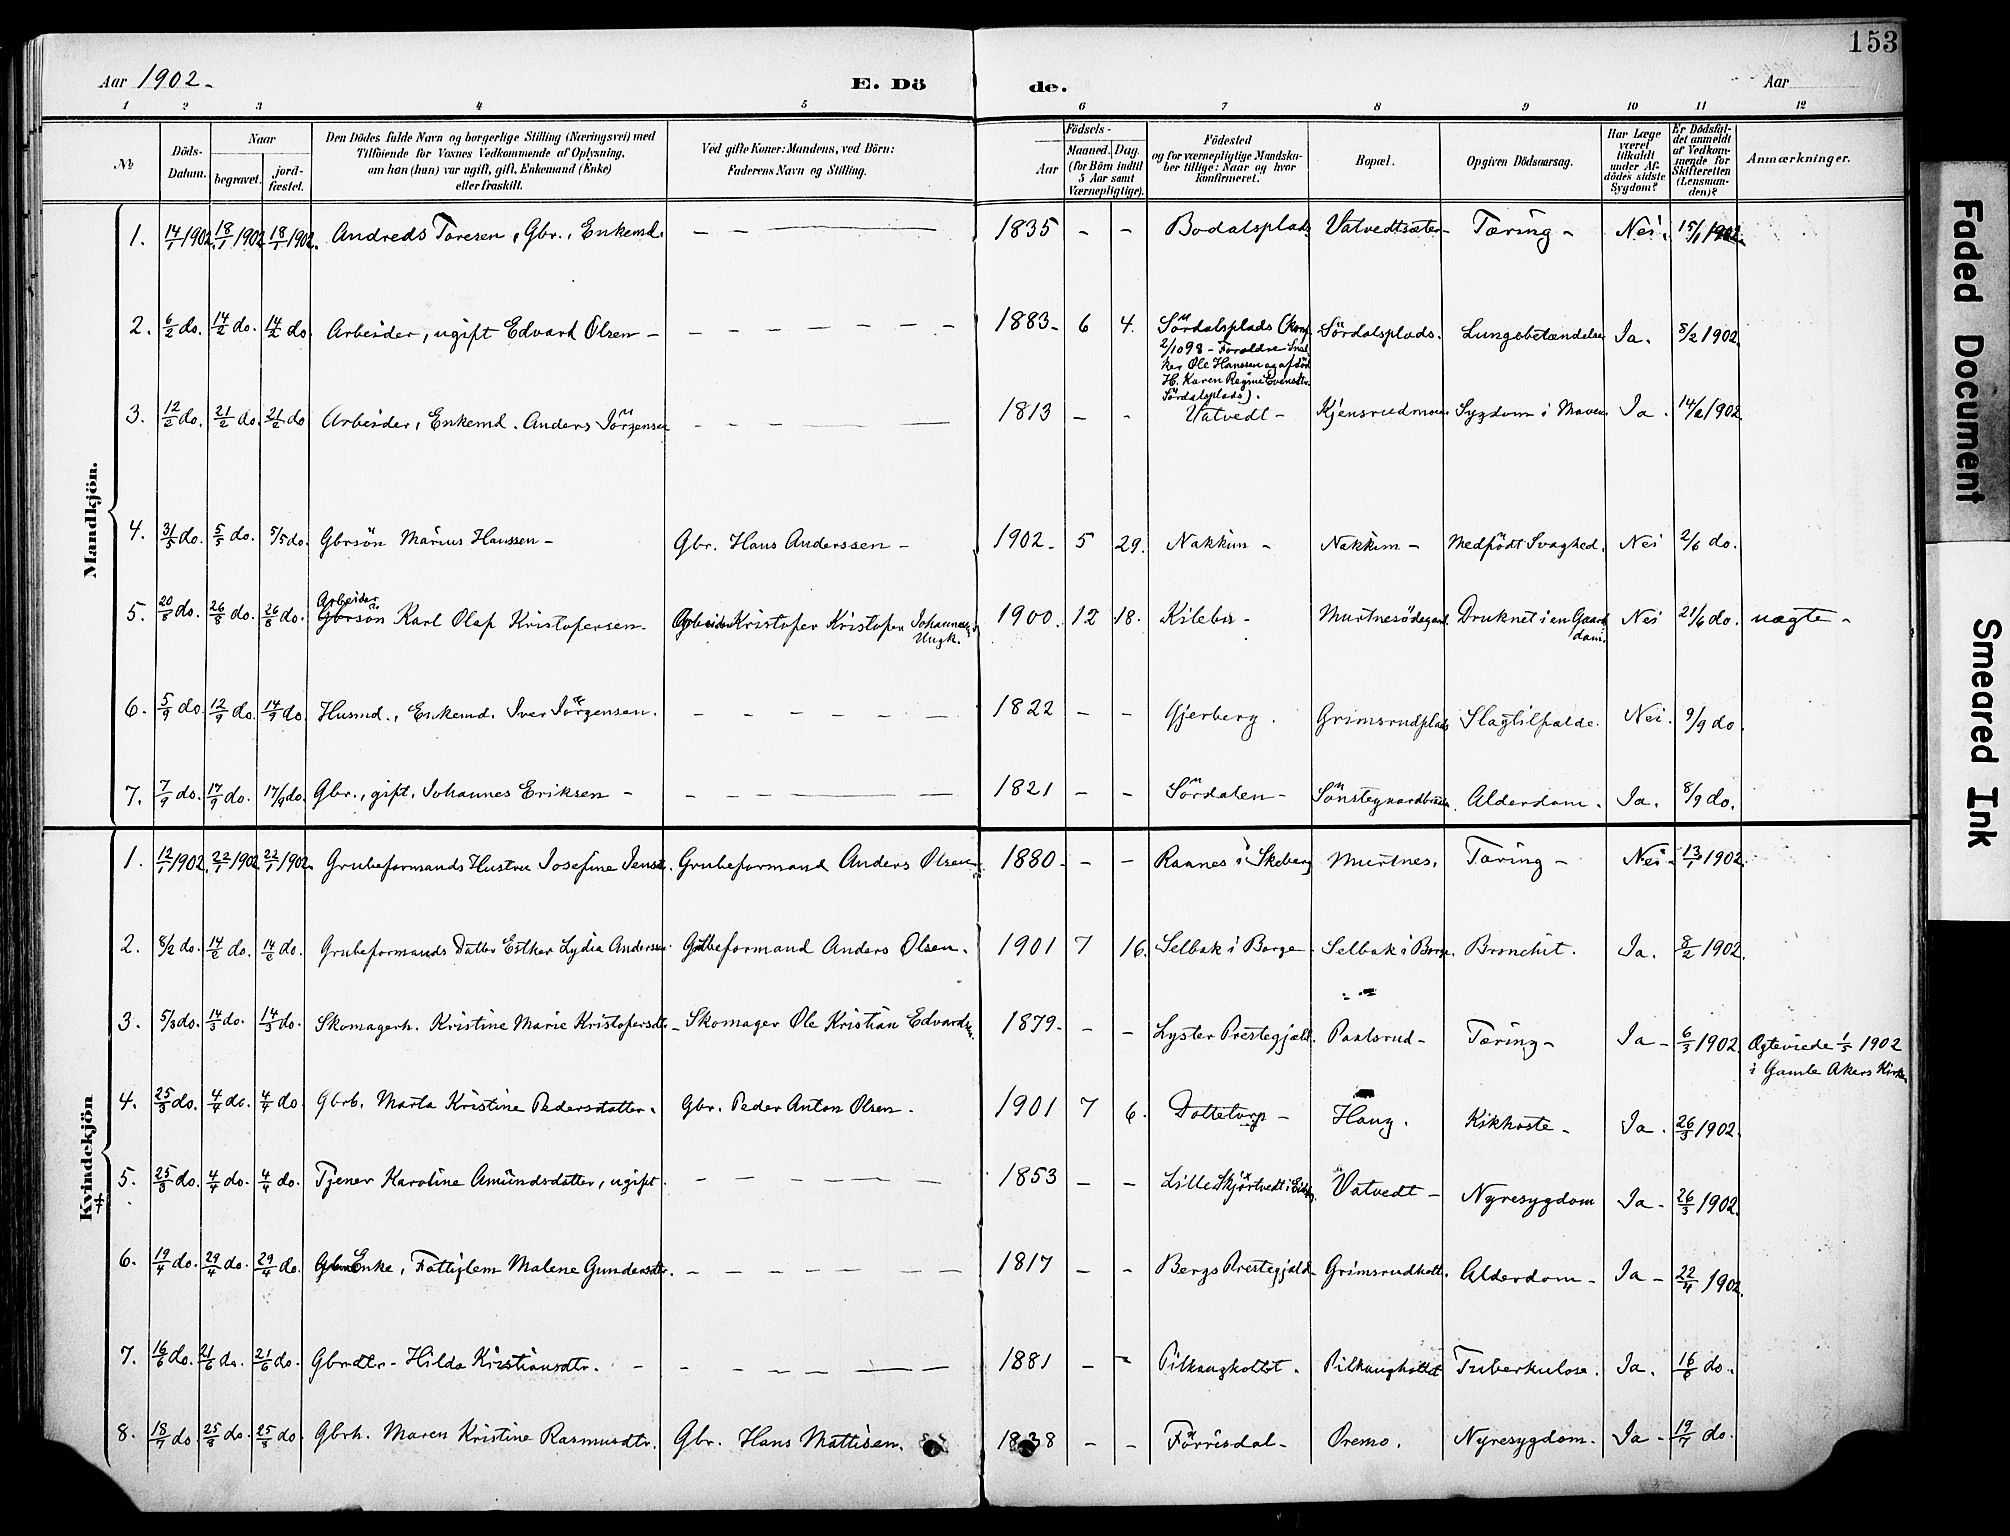 153
Aar 1902.
E. Döde.
Aar
1 2 3 4 5 6 7 8 9 10 11 12
№
Döds-Datum.
Naar
begravet.
jord-fæstet.
Den Dödes fulde Navn og borgerlige Stilling (Næringsvei) med
Tilföiende for Voxnes Vedkommende af Oplysning,
om han (hun) var ugift, gift, Enkemand (Enke)
eller fraskilt.
Ved gifte Koner: Mandens, ved Börn:
Faderens Navn og Stilling.
Födsels-
Aar
Maaned. Dag.
(for Börn indtil
5 Aar samt
Værnepligtige).
Födested
og for værnepligtige Mandska-
ber tillige: Naar og hvor
konfirmeret.
Bopæl.
Opgiven Dödsaarsag.
Har Læge
været
tilkaldt
under Af-
dödes sidste
Sygdom?
Er Dödsfal-
det anmeldt
af Vedkom-
mende for
Skifteretten
(Lensman-
den)?
Anmærkninger.
Mandkjön.
1. 14/1 1902. 18/1 1902 18/1 1902. Andreas Toresen, Gbr., Enkemd. — — — 1835 - - Bodalsplads Vatvedtsæter - Tæring - Nei. 15/1 1902.
2. 6/2 do. 14/2 do. 14/2 do. Arbeider, ugift Edvard Olsen - — — — 1883- 6 4. Sördalsplads (Konf.
2/10 98 - Forældre Snek
ker Ole Hanssen og afdöde
H. Karen Regine Evensdtr.
Sördalsplads).
Sördalsplads. Lungebetændelse Ja. 8/2 1902.
3. 12/2 do. 21/2 do. 21/2 do Arbeider, Enkemd. Anders Jörgensen — — — 1813 - - Vatvedt - Kjensrudmoen Sygdom i Maven Ja. 14/2 1902.
4. 31/5 do. 5/5 do. 5/5 do. Gbrsön Marius Hanssen - Gbr. Hans Anderssen - 1902. 5 29. Nakkim - Nakkim - Medfödt Svaghed. Nei 2/6 do.
5. 20/8 do. 26/8 do. 26/8 do. Arbeider Gbrsön Karl Olaf Kristofersen. Arbeider Kristofer Kristofer Johannesen Ungk. 1900. 12 18. Kilebu - Murtnesödegard. Druknet i en Gaard
dam. Nei 21/6 do. uægte -
6. 5/9 do. 12/9 do. 14/9 do. Husmd., Enkemd. Iver Jörgensen. — — — 1822 - - Gjerberg. Grimsrudplads Slagtilfælde. Nei. 9/9 do
7. 7/9 do. 17/9 do. 17/9 do. Gbr., gift. Johannes Eriksen - — — — 1821 - - Sördalen - Sönstegaardbraaten. Alderdom. Ja. 8/9 do.
Kvindekjön
1. 12/1 1902. 22/1 1902 22/1 1902. Grubeformands Hustru Josefine Jensdtr. Grubeformand Anders Olsen. 1880. - - Raanes i Skeberg Murtnes. Tæring - Nei - 13/1 1902.
2. 8/2 do. 14/2 do. 14/2 do. Grubeformands Datter Esther Lydia Andersen Grubeformand Anders Olsen. 1901 7 16. Selbak i Borge. Selbak i Borge. Bronchit. Ja. 8/2 1902.
3. 5/3 do. 14/3 do. 14/3 do. Skomagerh. Kristine Marie Kristofersdtr. - Skomager Ole Kristian Edvardsen. 1879. - - Lyster Prestegjæld. Paulsrud - Tæring - Ja - 6/3 1902. Ægteviede 1/5 1902
i Gamle Akers Kirke
4. 25/3 do. 4/4 do. 4/4 do. Gbrb. Marta Kristine Pedersdatter. Gbr. Peder Anton Olsen. 1901 7 6. Dottetorp - Haug. Kikhoste - Ja. 26/3 1902.
5. 25/3 do. 4/4 do. 4/4 do. Tjener Karoline Amundsdatter, ugift. — — — 1853 - - Lille Skjörtvedt i Eidsb. Vatvedt - Nyresygdom Ja - 26/3 1902.
6. 19/4 do. 29/4 do. 29/4 do. Enke, Fattiglem Malene Gundersdtr. — — — 1817 - - Bergs Prestegjæld - Grimsrudholt. Alderdom - Ja - 22/4 1902.
7. 16/6 do. 21/6 do. 21/6 do. Gbrdtr. - Hilda Kristiansdtr. — — — 1881 - - Pilkaugholtet. Pilkaugholtet Tuberkulose. Ja. 16/6 do.
8. 18/7 do. 25/8 do. 25/8 do. Gbrh. Maren Kristine Rasmusdtr. Gbr. Hans Mattisen. 1838 - - Förrisdal - Oremo. Nyresygdom. Ja - 19/7 do.
Faded Document
Smeared Ink